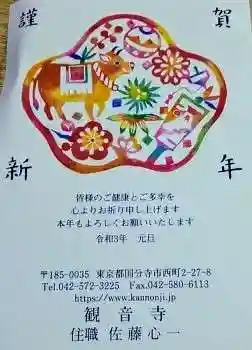 謹賀
新年
皆様のご健康とご多幸を
心よりお祈り申し上げます
本年もよろしくお願いいたします
令和3年 元旦
〒185-0035 東京都国分寺市西町2-27-8
Tel.042-572-3225 Fax.042-580-6113
https://www.kannonji.jp
観音寺
住職 佐藤心一